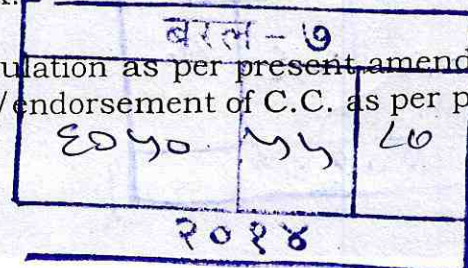 बरल - ७
ulation as per present amend
/endorsement of C.C. as per p
६०५० ५५ ८७
२०१४